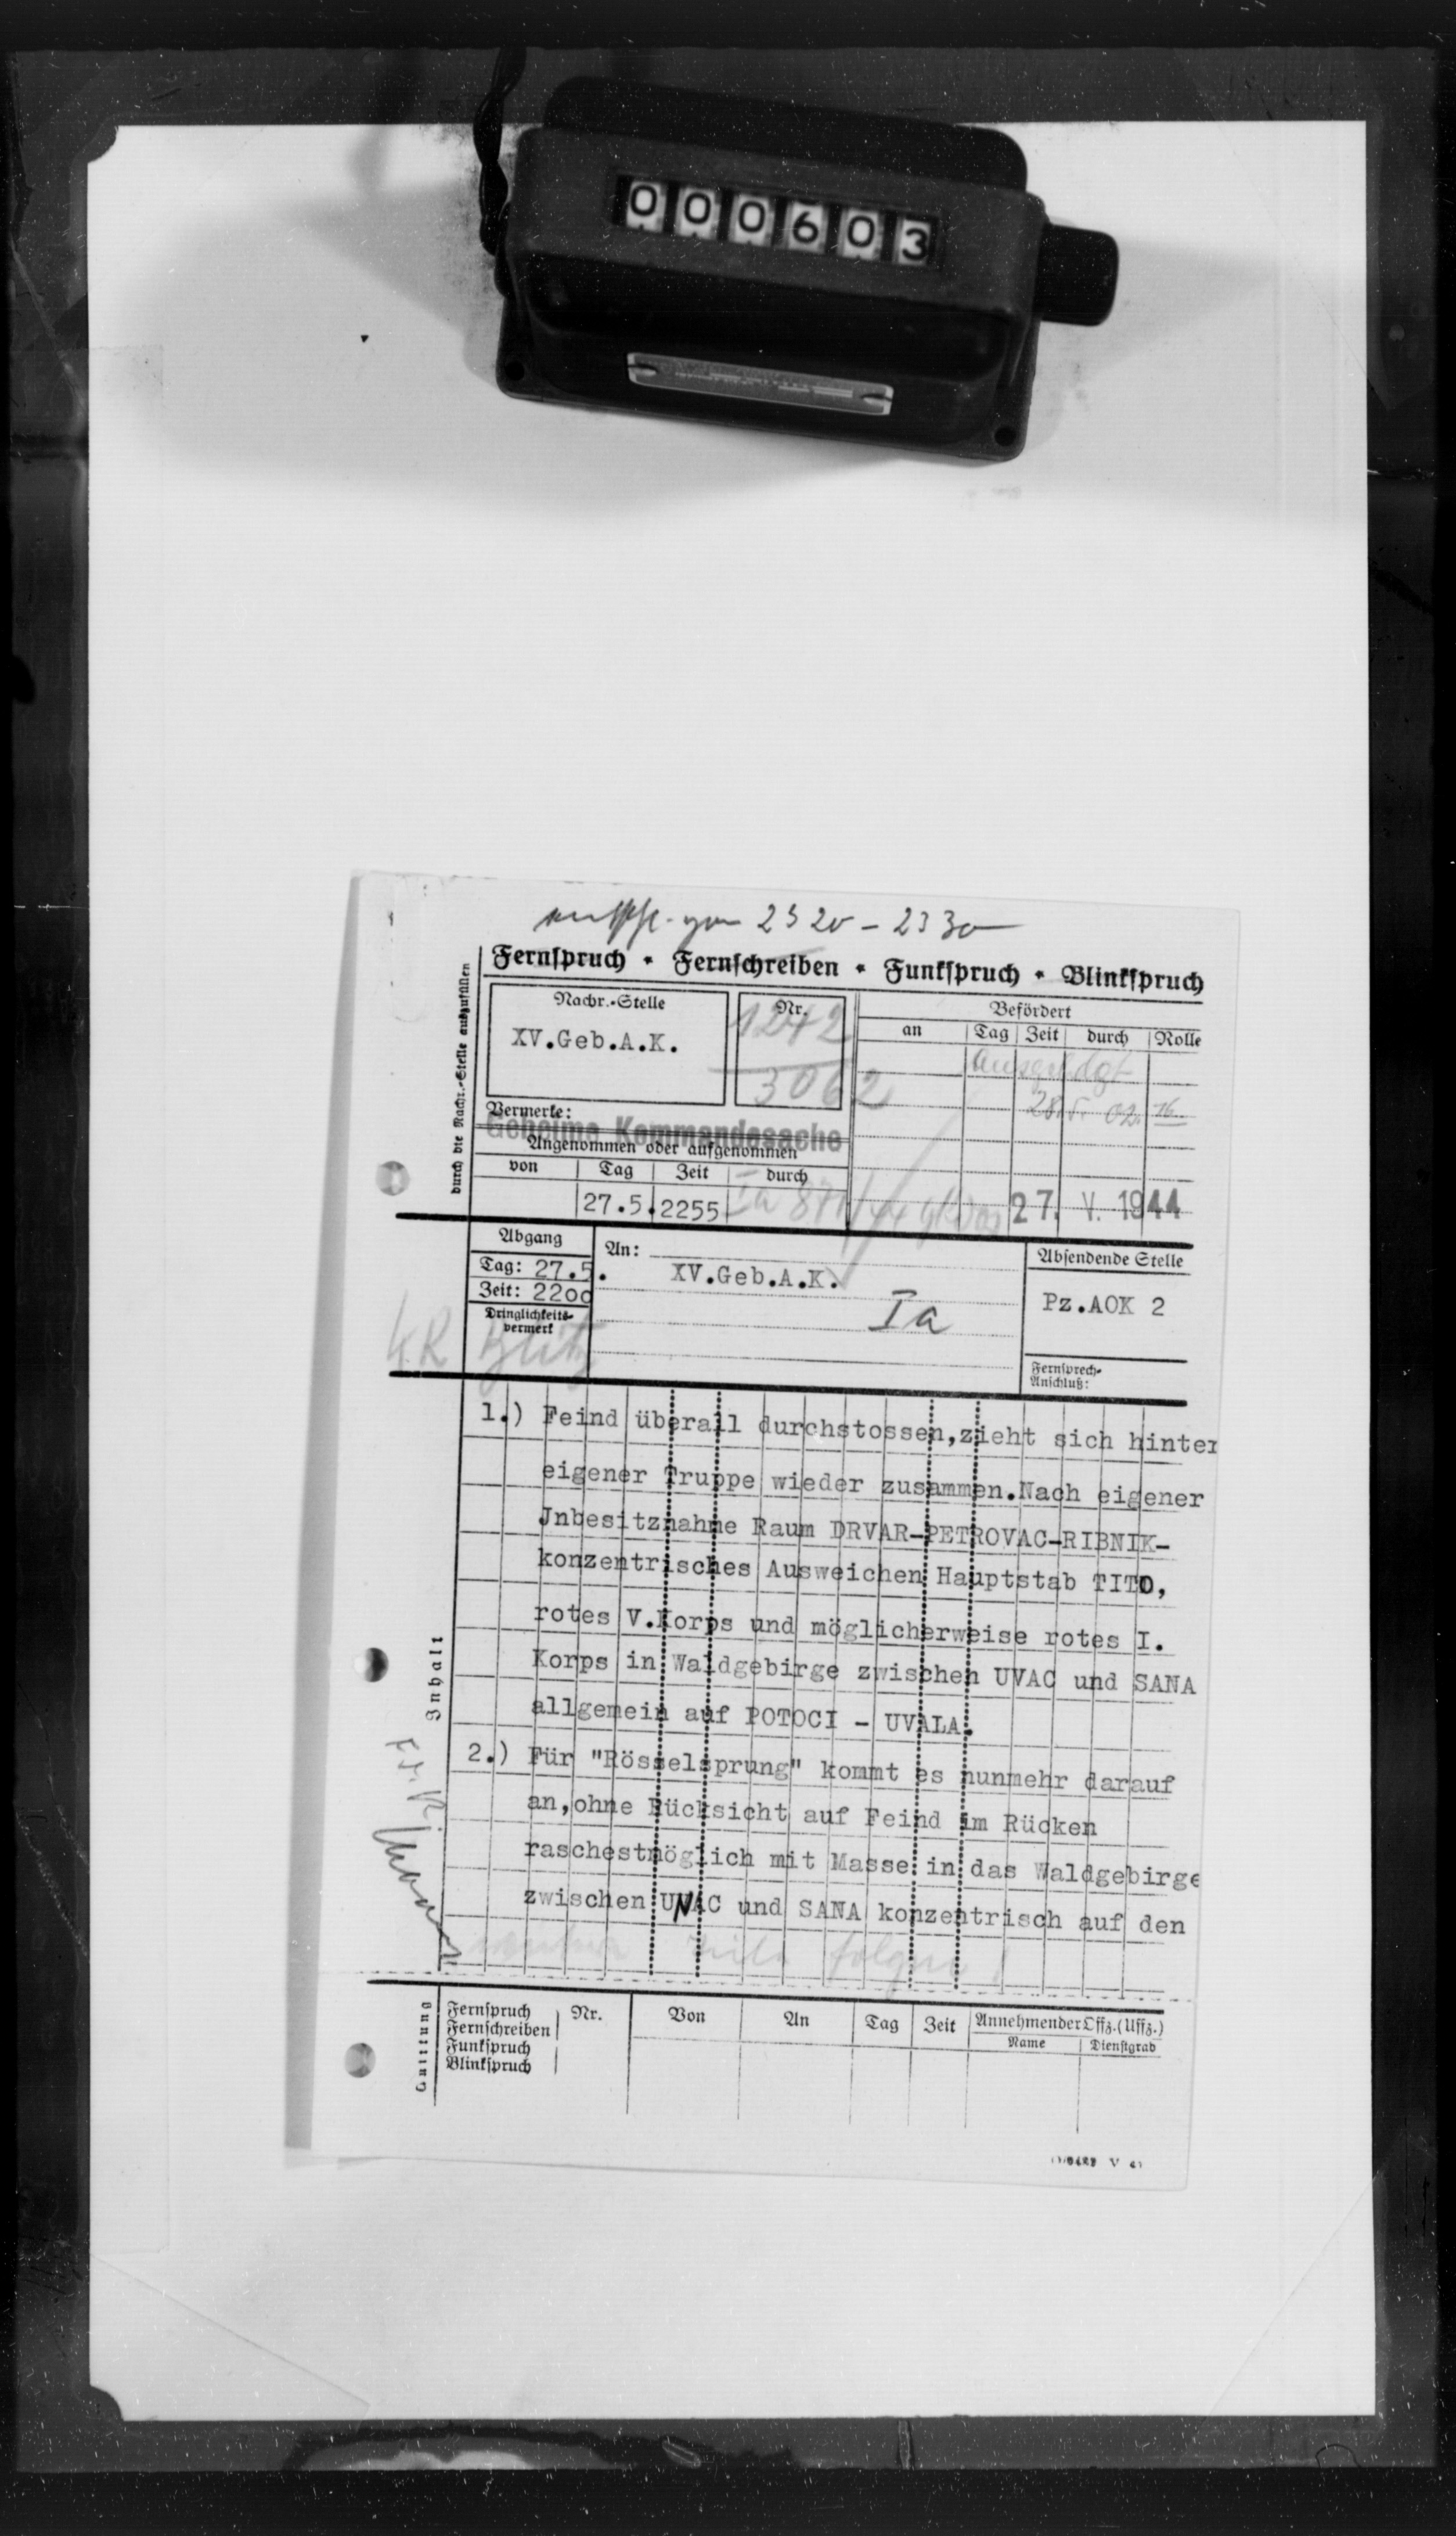 000603
23 20 - 23 30
Fernspruch * Fernschreiben * Funkspruch * Blinkspruch
durch die Nachr.-Stelle auszufüllen
Nachr.-Stelle
XV.Geb.A.K.
Nr.
1242
3062
Befördert
an Tag Zeit durch Rolle
28.5. 02 16
Vermerke:
Geheime Kommandosache
Angenommen oder aufgenommen
von Tag Zeit durch
27.5. 2255 Ia 871/44 gKdos
27. V. 1944
Abgang
Tag: 27.5.
Zeit: 2200
Dringlichkeits-
vermerk
KR Blitz
An:
XV.Geb.A.K.
Ia
Absendende Stelle
Pz.AOK 2
Fernsprech-
Anschluß:
Inhalt
1.) Feind überall durchstossen,zieht sich hinter
eigener Truppe wieder zusammen.Nach eigener
Jnbesitznahme Raum DRVAR-PETROVAC-RIBNIK-
konzentrisches Ausweichen Hauptstab TITO,
rotes V.Korps und möglicherweise rotes I.
Korps in Waldgebirge zwischen UVAC und SANA
allgemein auf POTOCI - UVALA.
2.) Für "Rösselsprung" kommt es nunmehr darauf
an,ohne Rücksicht auf Feind im Rücken
raschestmöglich mit Masse in das Waldgebirge
zwischen UNAC und SANA konzentrisch auf den
folgen!
Quittung
Fernspruch
Fernschreiben
Funkspruch
Blinkspruch
Nr. Von An Tag Zeit Annehmender Offz.(Uffz.)
Name Dienstgrad